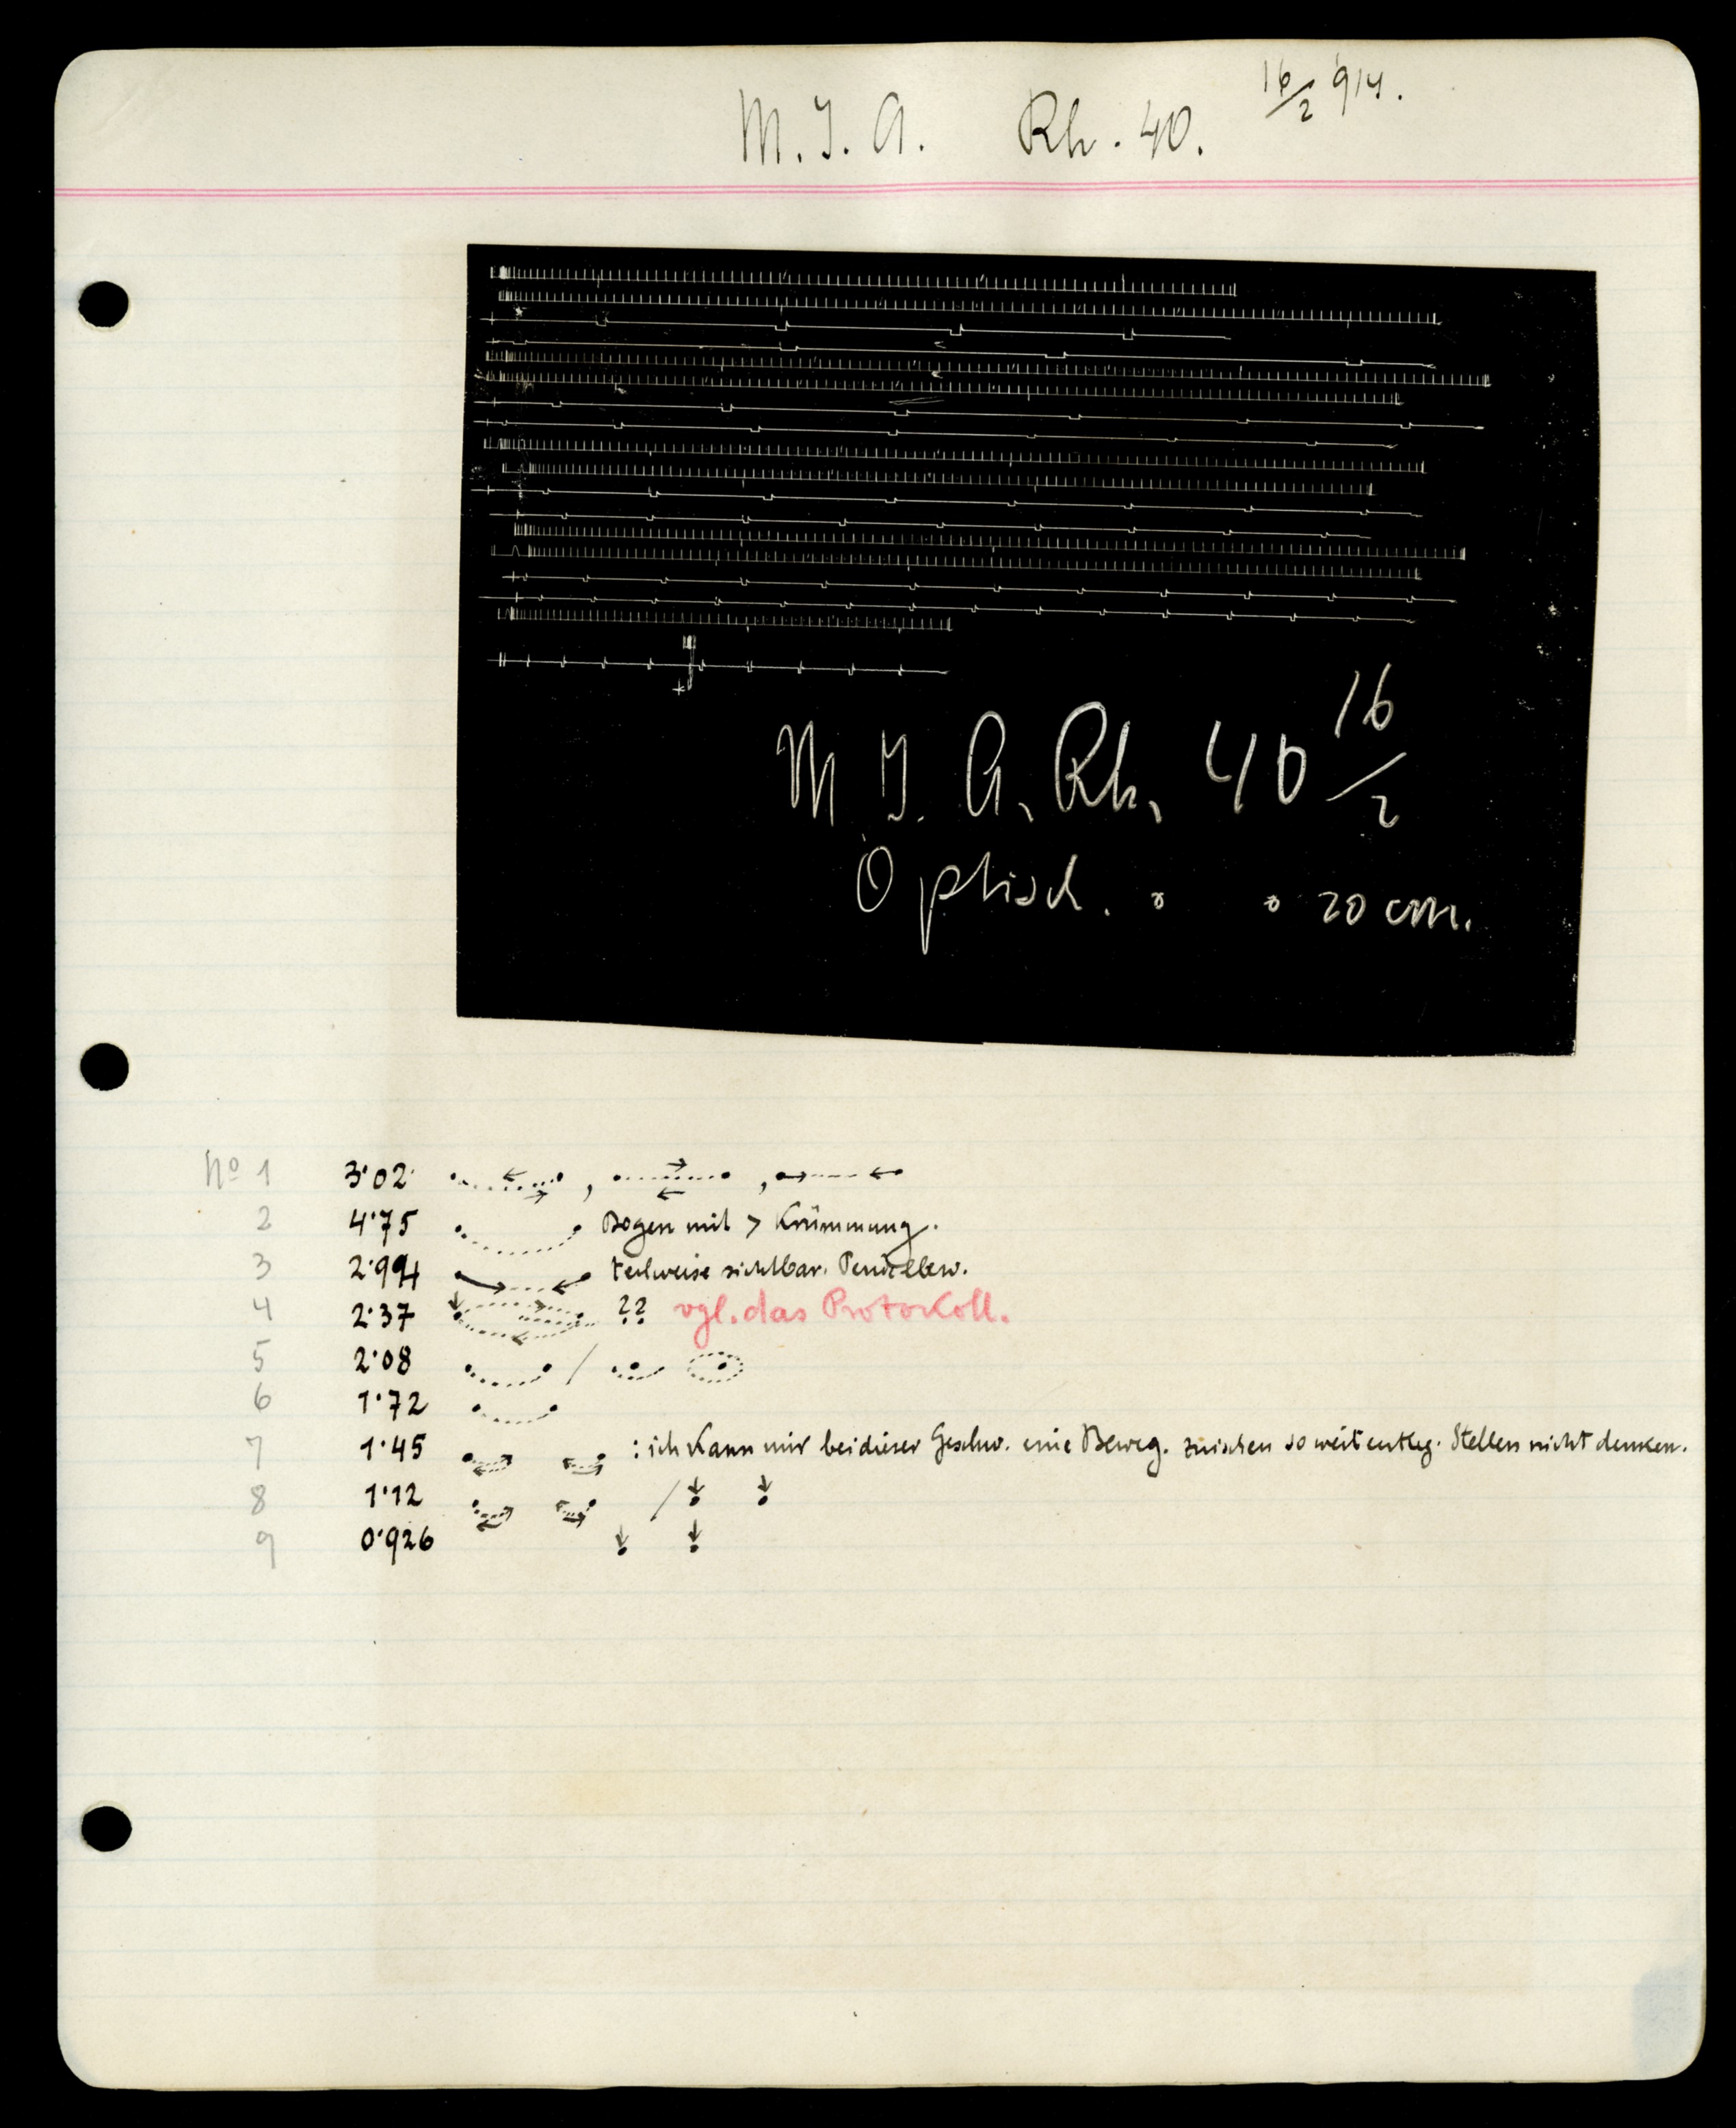 M. J. A. Rh. 40. 16/2 914.
M. J. A. Rh. 40 16/2
Optisch. 20 cm.
No 1 3·02
2 4·75 Bogen mit > Krümmung.
3 2·994 teilweise sichtbar. Pendelbew.
4 2·37 ?? vgl. das Protokoll.
5 2·08 /
6 1·72
7 1·45 : ich kann mir bei dieser Geschw. eine Beweg. zwischen so weit entleg. Stellen nicht denken.
8 1·12 /
9 0·926